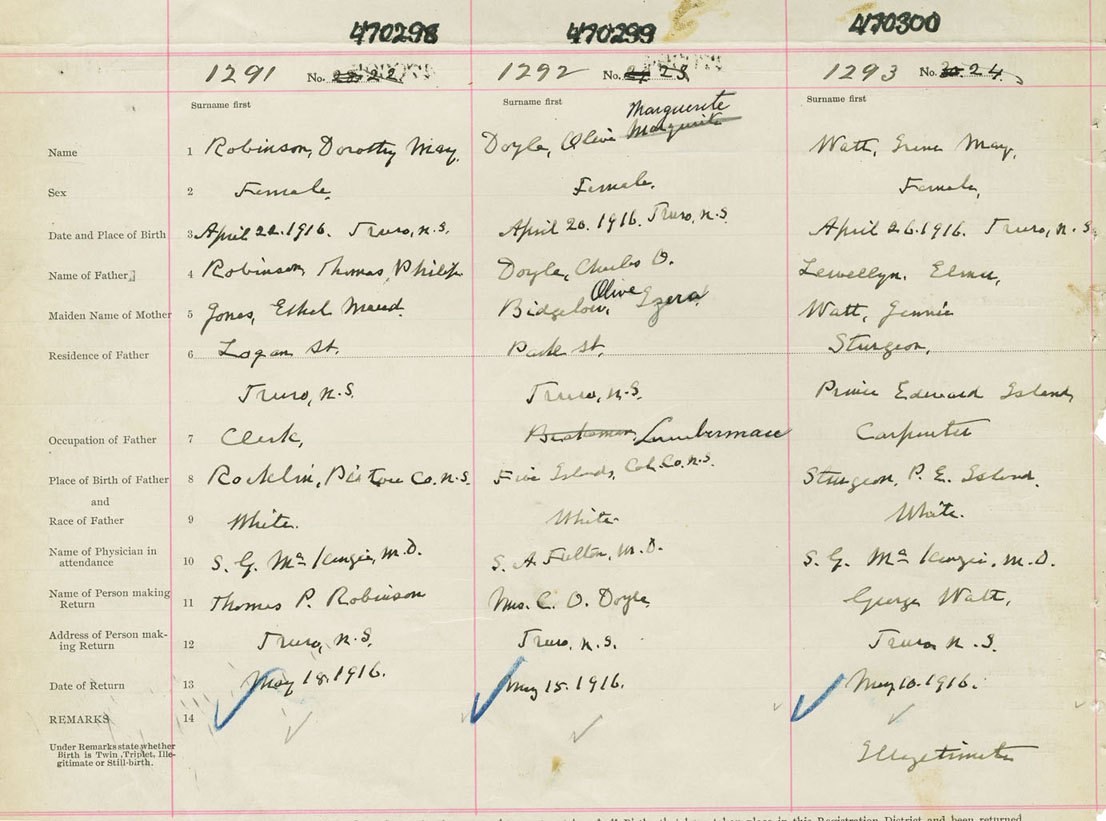 470298 470299 470300
1291 No. 22 1292 No. 23 1293 No. 24
Surname first Surname first Surname first
Marguerite
Margurite
Name 1 Robinson, Dorothy May, Doyle, Olive Watt, Irene May,
Sex 2 Female, Female, Female,
Date and Place of Birth 3 April 22. 1916. Truro, N.S. April 20. 1916. Truro, N.S. April 26. 1916. Truro, N.S.
Name of Father 4 Robinson, Thomas, Philip Doyle, Charles O. Lewellyn, Elmer,
Olive
Maiden Name of Mother 5 Jones, Ethel Maud. Bidgelow, Ezera Watt, Jennie
Residence of Father 6 Logan St. Park St, Sturgeon,
Truro, N.S. Truro, N.S. Prince Edward Island,
Occupation of Father 7 Clerk, Brakeman, Lumberman Carpenter
Place of Birth of Father 8 Rocklin, Pictou Co. N.S. Five Islands, Col. Co. N.S. Sturgeon, P. E. Island.
and
Race of Father 9 White. White White.
Name of Physician in
attendance 10 S. G. McKenzie, M.D. S. A. Fulton, M.D. S. G. McKenzie, M.D.
Name of Person making
Return 11 Thomas P. Robinson Mrs. C. O. Doyle George Watt,
Address of Person mak-
ing Return 12 Truro, N.S. Truro, N.S. Truro N.S.
Date of Return 13 May 18. 1916. May 15. 1916. May 10. 1916.
REMARKS 14
Under Remarks state whether
Birth is Twin, Triplet, Ille-
gitimate or Still-birth.
Illegetimate
taken place in this Registration District and been returned